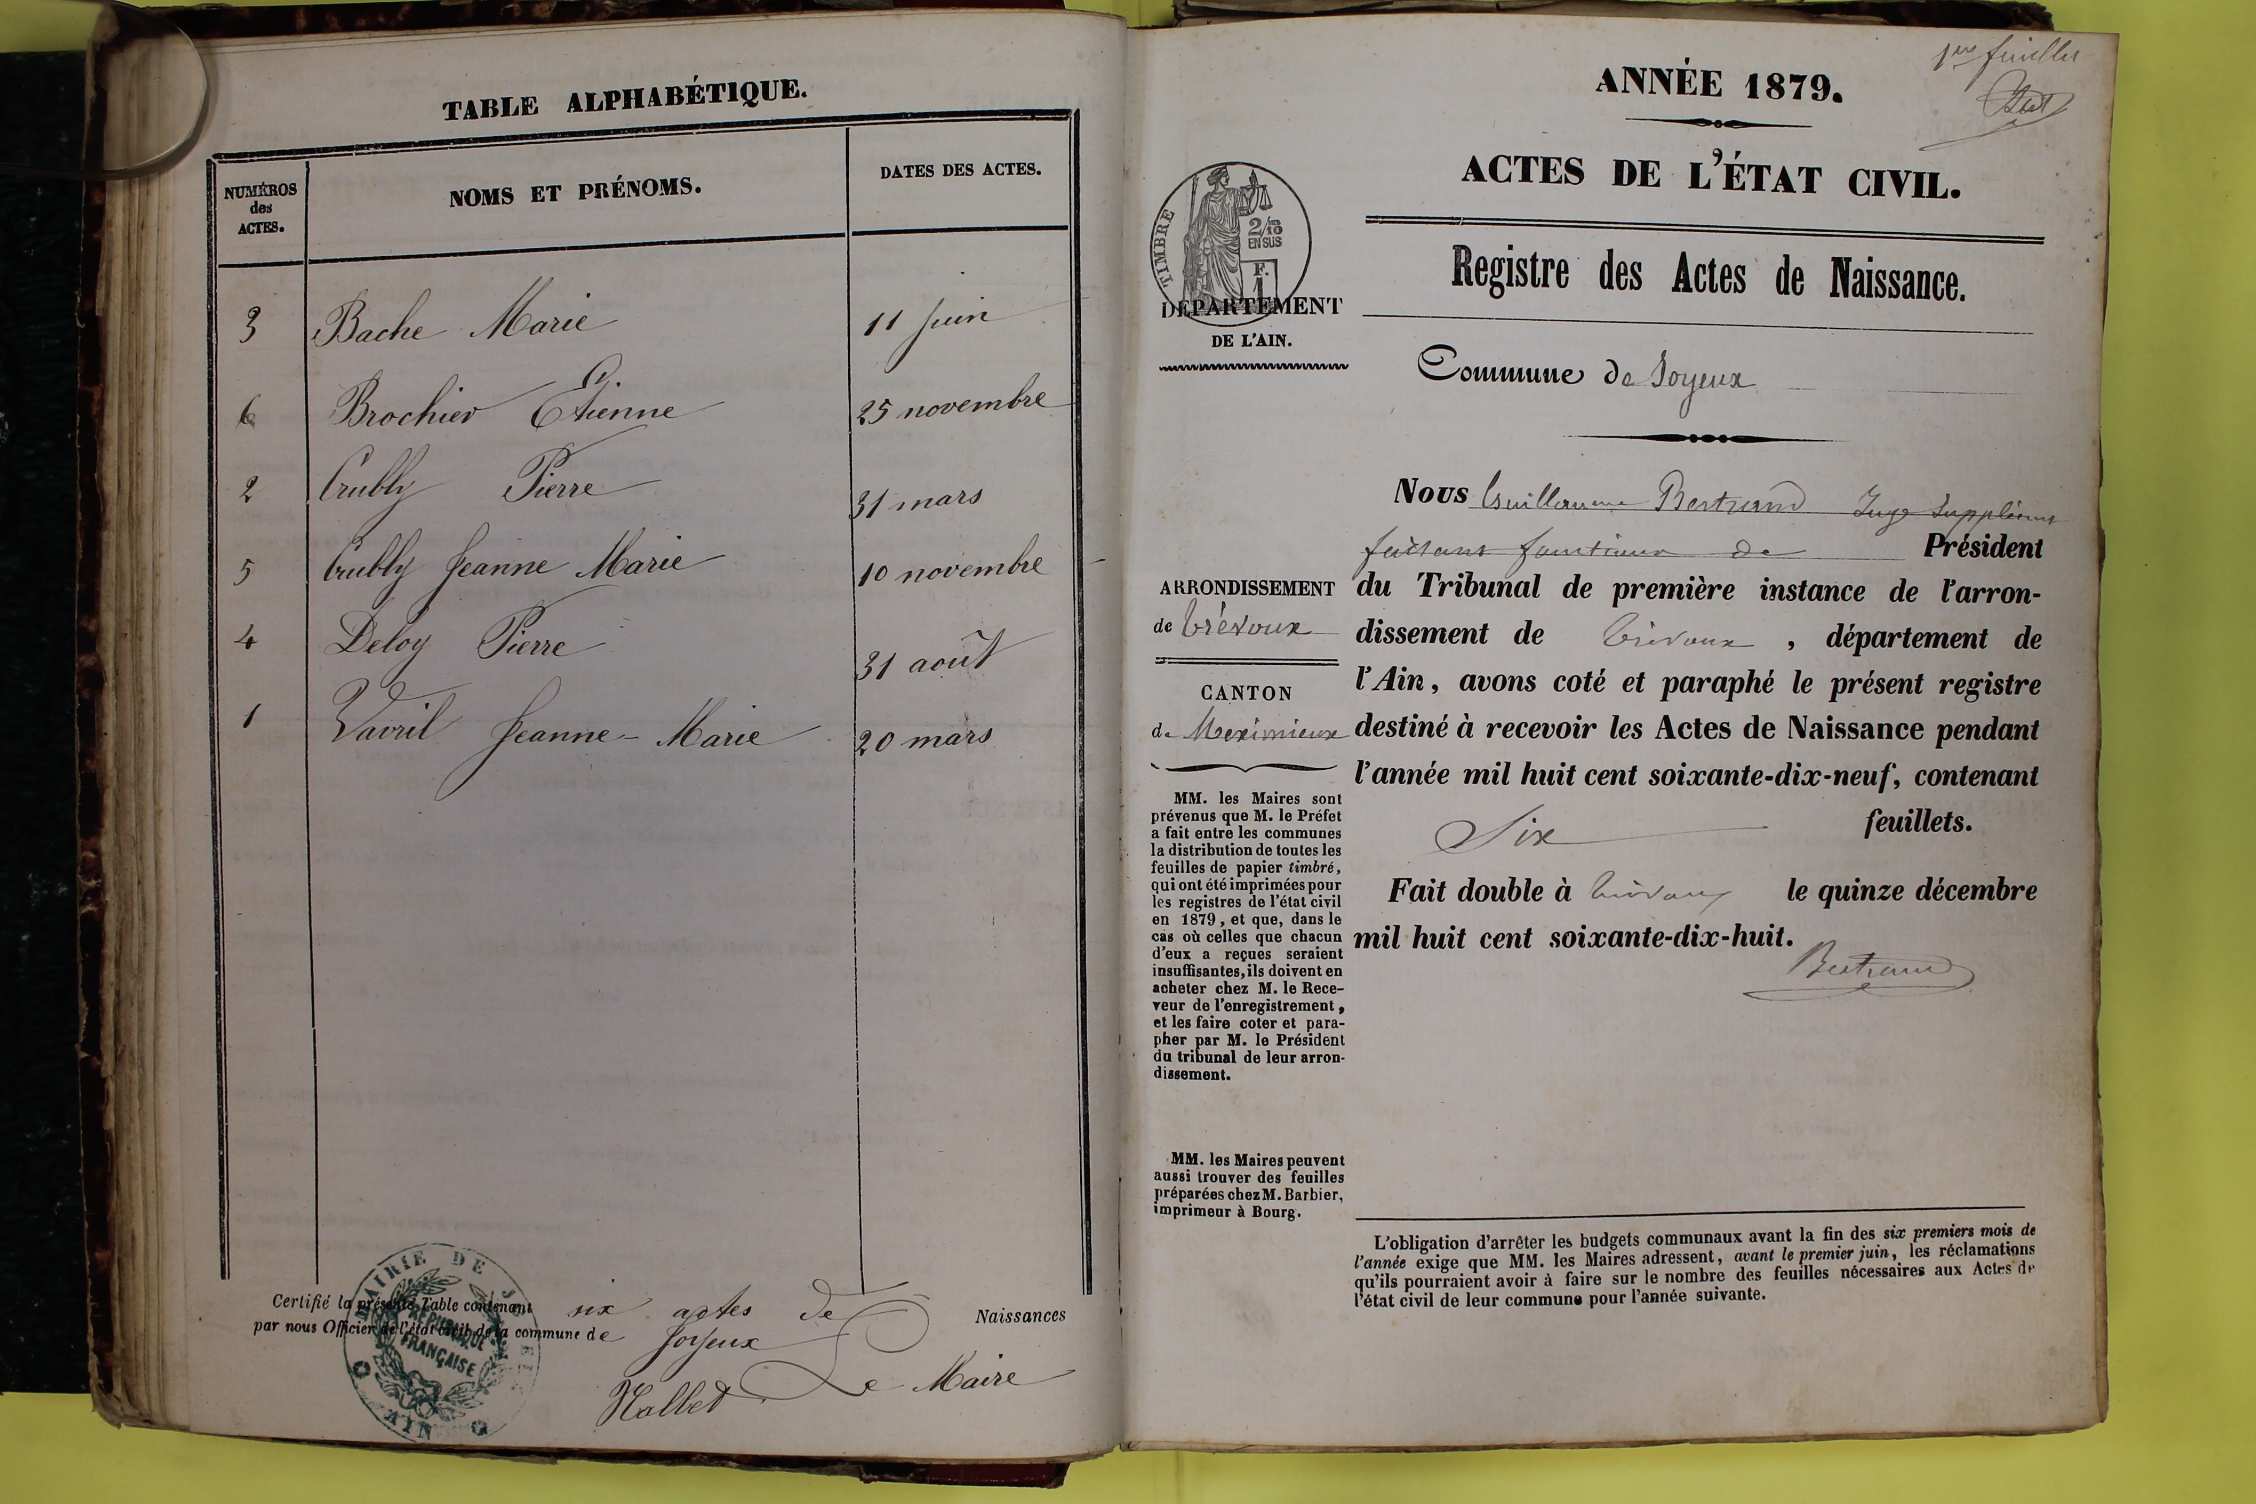 TABLE ALPHABÉTIQUE.
NUMÉROS
des
ACTES.
NOMS ET PRÉNOMS.
DATES DES ACTES.
3 Bache Marie 11 Juin
6 Brochier Étienne 25 novembre
2 Crubly Pierre 31 mars
5 Crubly Jeanne Marie 10 novembre
4 Deloy Pierre 31 août
1 Vavril Jeanne-Marie 20 mars
Certifié la présente Table contenant six actes de Naissances
par nous Officier de l'état civil de la commune de Joyeux
Le Maire
MAIRIE DE
RÉPUBLIQUE
FRANÇAISE
AIN
1er feuillet
ANNÉE 1879.
ACTES DE L'ÉTAT CIVIL.
TIMBRE
2/10
EN SUS
F.
1
DÉPARTEMENT
DE L'AIN.
Registre des Actes de Naissance.
Commune de Joyeux
ARRONDISSEMENT
de Trévoux
CANTON
de Meximieux
MM. les Maires sont
prévenus que M. le Préfet
a fait entre les communes
la distribution de toutes les
feuilles de papier timbré,
qui ont été imprimées pour
les registres de l'état civil
en 1879, et que, dans le
cas où celles que chacun
d'eux a reçues seraient
insuffisantes, ils doivent en
acheter chez M. le Rece-
veur de l'enregistrement,
et les faire coter et para-
pher par M. le Président
du tribunal de leur arron-
dissement.
MM. les Maires peuvent
aussi trouver des feuilles
préparées chez M. Barbier,
imprimeur à Bourg.
Nous Guillaume Bertrand Juge Suppléant
faisant fonctions de Président
du Tribunal de première instance de l'arron-
dissement de Trévoux, département de
l'Ain, avons coté et paraphé le présent registre
destiné à recevoir les Actes de Naissance pendant
l'année mil huit cent soixante-dix-neuf, contenant
Six feuillets.
Fait double à Trévoux le quinze décembre
mil huit cent soixante-dix-huit.
Bertrand
L'obligation d'arrêter les budgets communaux avant la fin des six premiers mois de
l'année exige que MM. les Maires adressent, avant le premier juin, les réclamations
qu'ils pourraient avoir à faire sur le nombre des feuilles nécessaires aux Actes de
l'état civil de leur commune pour l'année suivante.